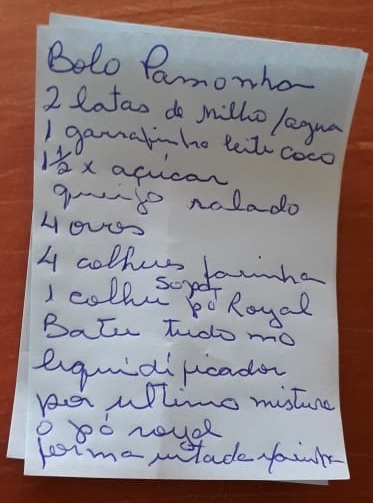 Bolo Pamonha
2 latas de milho /agua
1 garrafinha leite coco
1 1/2 x açúcar
queijo ralado
4 ovos
4 colheres farinha
1 colher sopa pó Royal
Bater tudo no
liquidificador
por ultimo misture
o pó royal
forma untada farinha